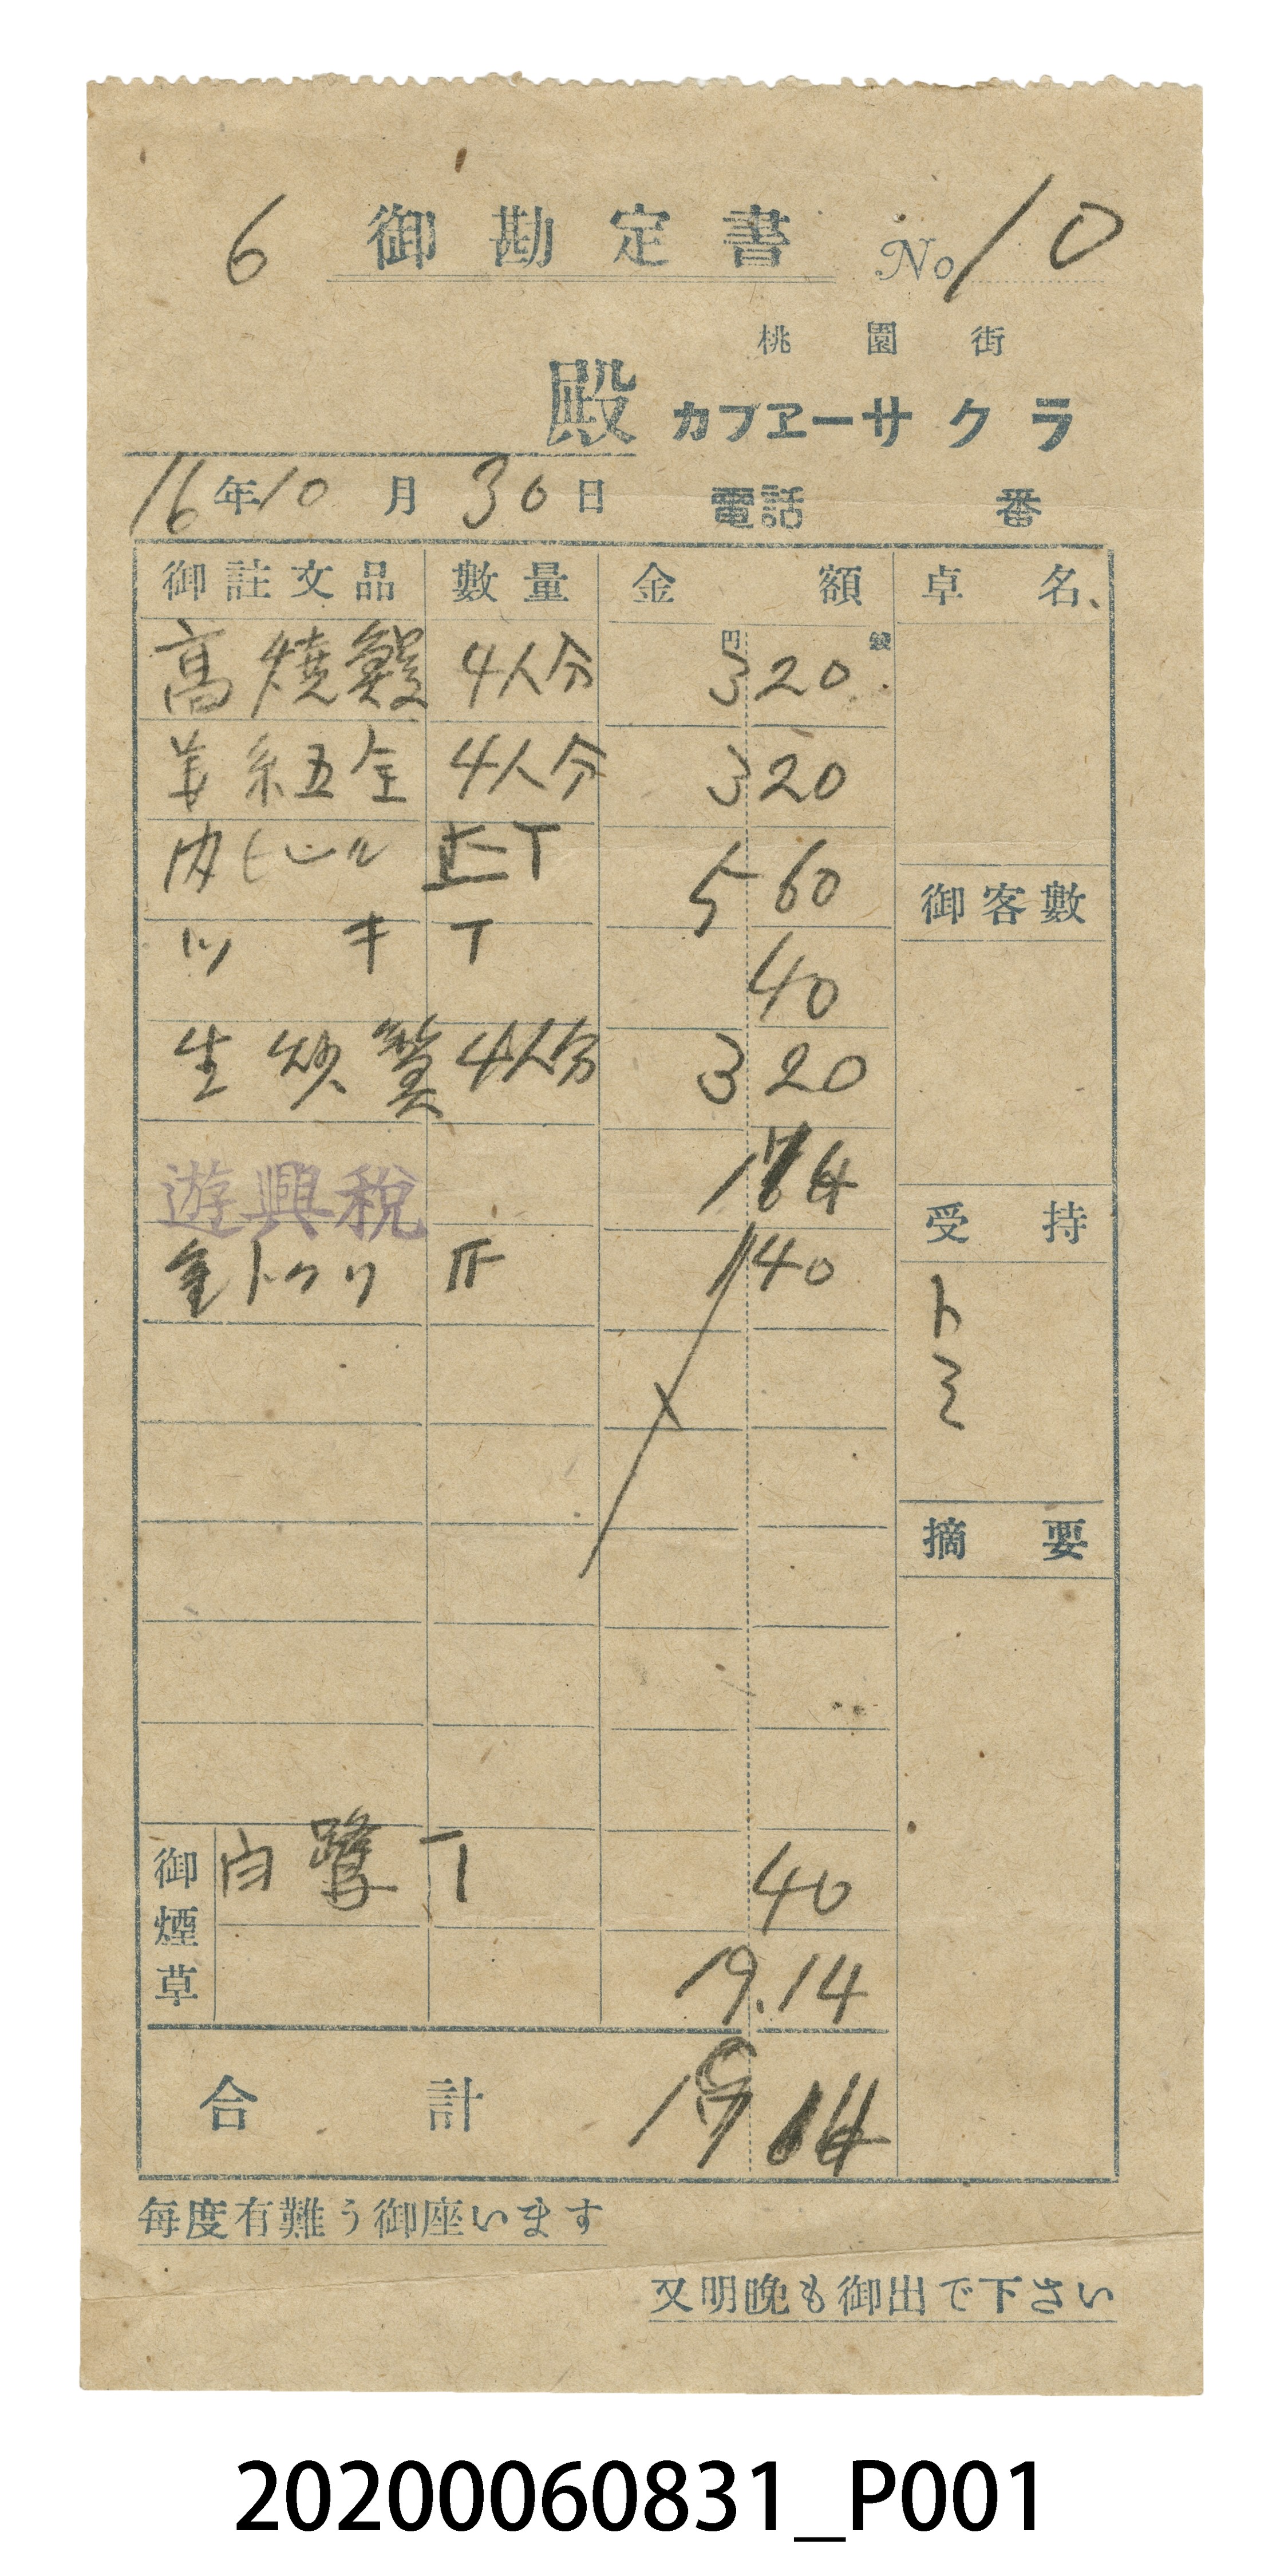 6 御勘定書 No 10
桃園街
殿 カフヱーサクラ
16年10月30日 電話 番
御註文品 數量 金額 卓名
円 錢
高燒鰻 4人分 3 20
羊紅全 4人分 3 20
内ビール 正T 5 60
ツキ T 40
生炒 4人分 3 20
遊興税 1 14
トクリ 1 40
御客數
受持
トミ
摘要
御煙草 白鷺 T 40
19.14
合計 19 14
毎度有難う御座います
又明晩も御出で下さい
20200060831_P001